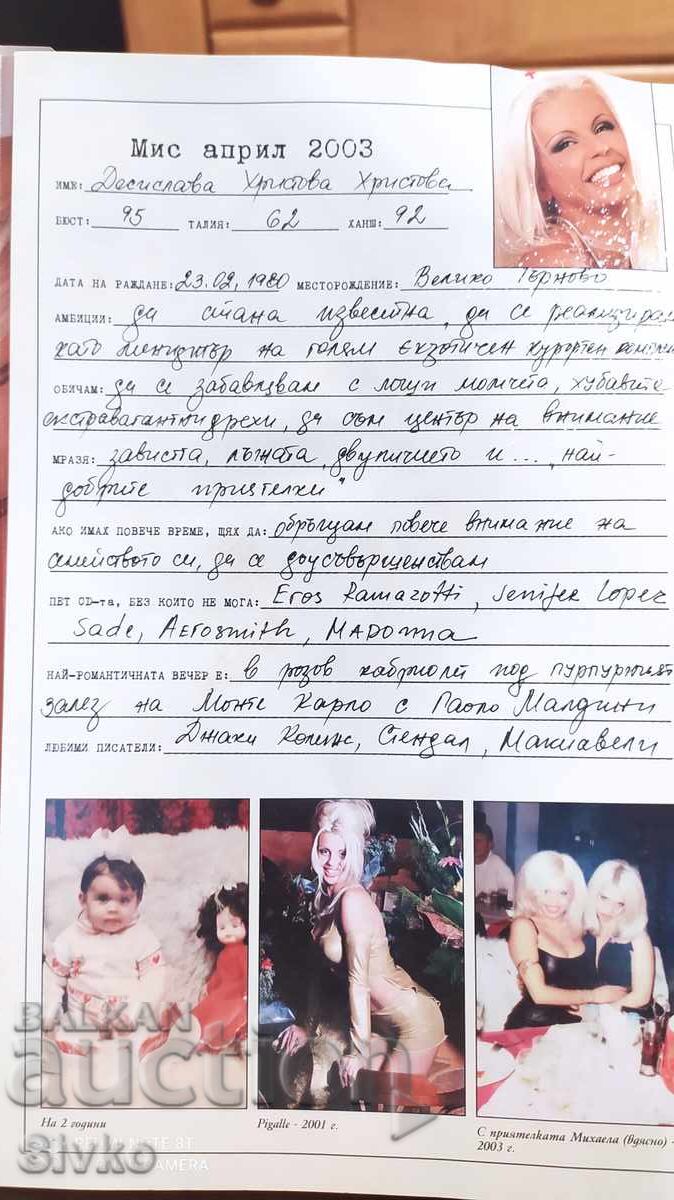 Мис април 2003
ИМЕ: Десислава Христова Христова
БЮСТ: 95 ТАЛИЯ: 62 ХАНШ: 92
ДАТА НА РАЖДАНЕ: 23.02.1980 МЕСТОРОЖДЕНИЕ: Велико Търново
АМБИЦИИ: да стана известна, да се реализирам
като мениджър на голям екзотичен курортен
ОБИЧАМ: да се забавлявам с лоши момчета, хубавите
екстравагантни дрехи, да съм център на внимание
МРАЗЯ: завистта, лъжата, двуличието и ... „най-
добрите приятелки"
АКО ИМАХ ПОВЕЧЕ ВРЕМЕ, ЩЯХ ДА: обръщам повече внимание на
семейството си, да се доусъвършенствам
ПЕТ CD-та, БЕЗ КОИТО НЕ МОГА: Eros Ramazotti, Jenifer Lopez
Sade, Aerosmith, Madonna
НАЙ-РОМАНТИЧНАТА ВЕЧЕР Е: в розов кабриолет под пурпурният
залез на Монте Карло с Паоло Малдини
ЛЮБИМИ ПИСАТЕЛИ: Джаки Колинс, Стендал, Макиавели
На 2 години
Pigalle - 2001 г.
С приятелката Михаела (вдясно) -
2003 г.
BALKAN
auction
REDMI NOTE 8T
CAMERA
Sivko